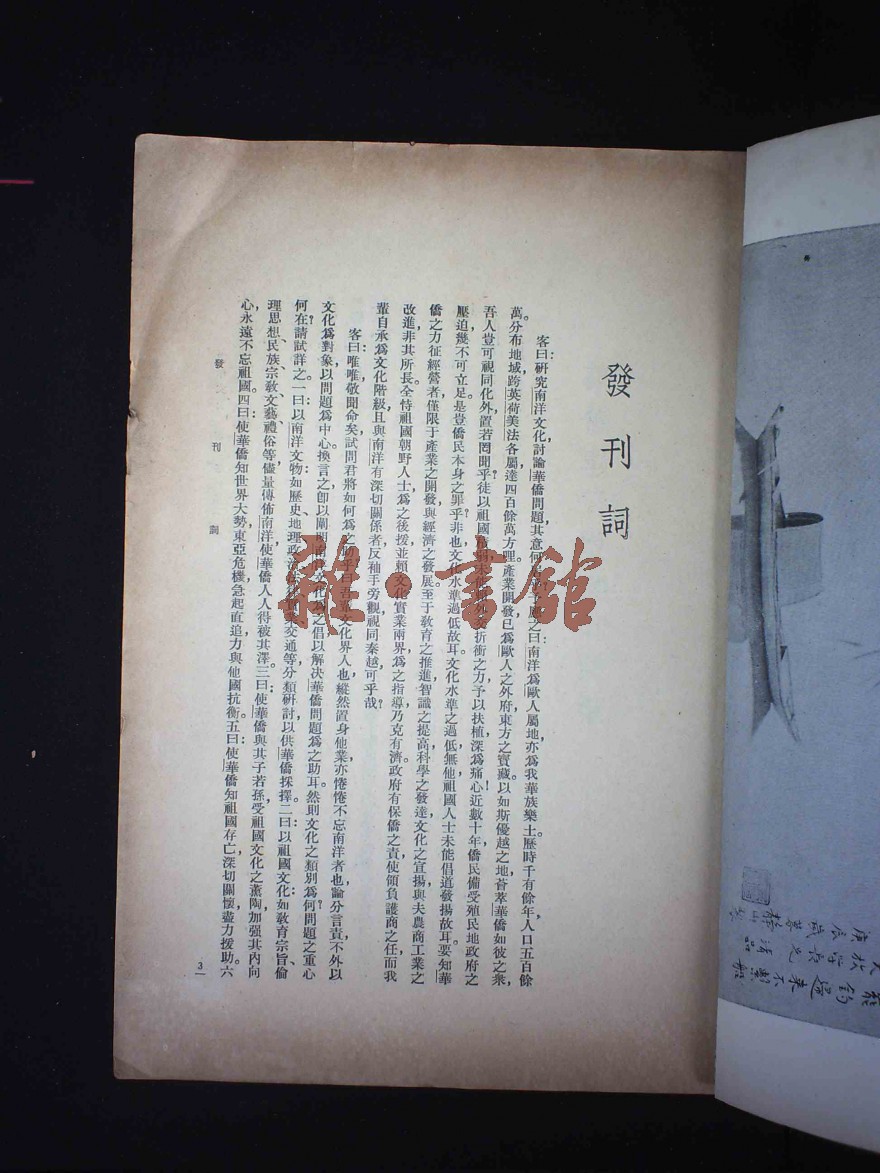 發刊詞
客曰：研究南洋文化，討論華僑問題，其意何居？
應之曰：南洋爲歐人屬地，亦爲我華族樂土。歷時千有餘年，人口五百餘
萬。分布地域，跨英荷美法各屬，達四百餘萬方理。產業開發，已爲歐人之外府，東方之寶藏。以如斯優越之地，薈萃華僑如彼之衆，
吾人豈可視同化外，置若罔聞乎！徒以祖國
折衝之力，予以扶植，深爲痛心！近數十年，僑民備受殖民地政府之
壓迫，幾不可立足。是豈僑民本身之罪乎？非也，文化水準過低故耳。文化水準之過低無他，祖國人士未能倡道發揚故耳。要知華
僑之力征經營者，僅限于產業之開發，與經濟之發展。至于教育之推進，智識之提高，科學之發達，文化之宣揚，與夫農商工業之
改進，非其所長。全恃祖國朝野人士爲之後援，並賴文化實業兩界，爲之指導，乃克有濟。政府有保僑之責，使領負護商之任，而我
輩自承爲文化階級，且與南洋有深切關係者，反袖手旁觀，視同秦越，可乎哉？
客曰：唯唯，敬聞命矣。試問君將如何爲之助乎？曰：吾輩文化界人也，縱然置身他業，亦惓惓不忘南洋者也。論分言責，不外以
文化爲對象，以問題爲中心。換言之，卽以闡明南洋文化爲之倡，以解決華僑問題爲之助耳。然則文化之類別爲何？問題之重心
何在？請試詳之。一曰：以南洋文物，如歷史、地理、政治、
交通等，分類研討，以供華僑採擇。二曰：以祖國文化，如教育宗旨、倫
理思想、民族、宗教、文藝、禮俗等，儘量傳佈南洋，使華僑人人得被其澤。三曰：使華僑與其子若孫，受祖國文化之薰陶，加强其內向
心，永遠不忘祖國。四曰：使華僑知世界大勢，東亞危機，急起直追，力與他國抗衡。五曰：使華僑知祖國存亡，深切關懷，盡力援助。六
發刊詞
3
雜·書館